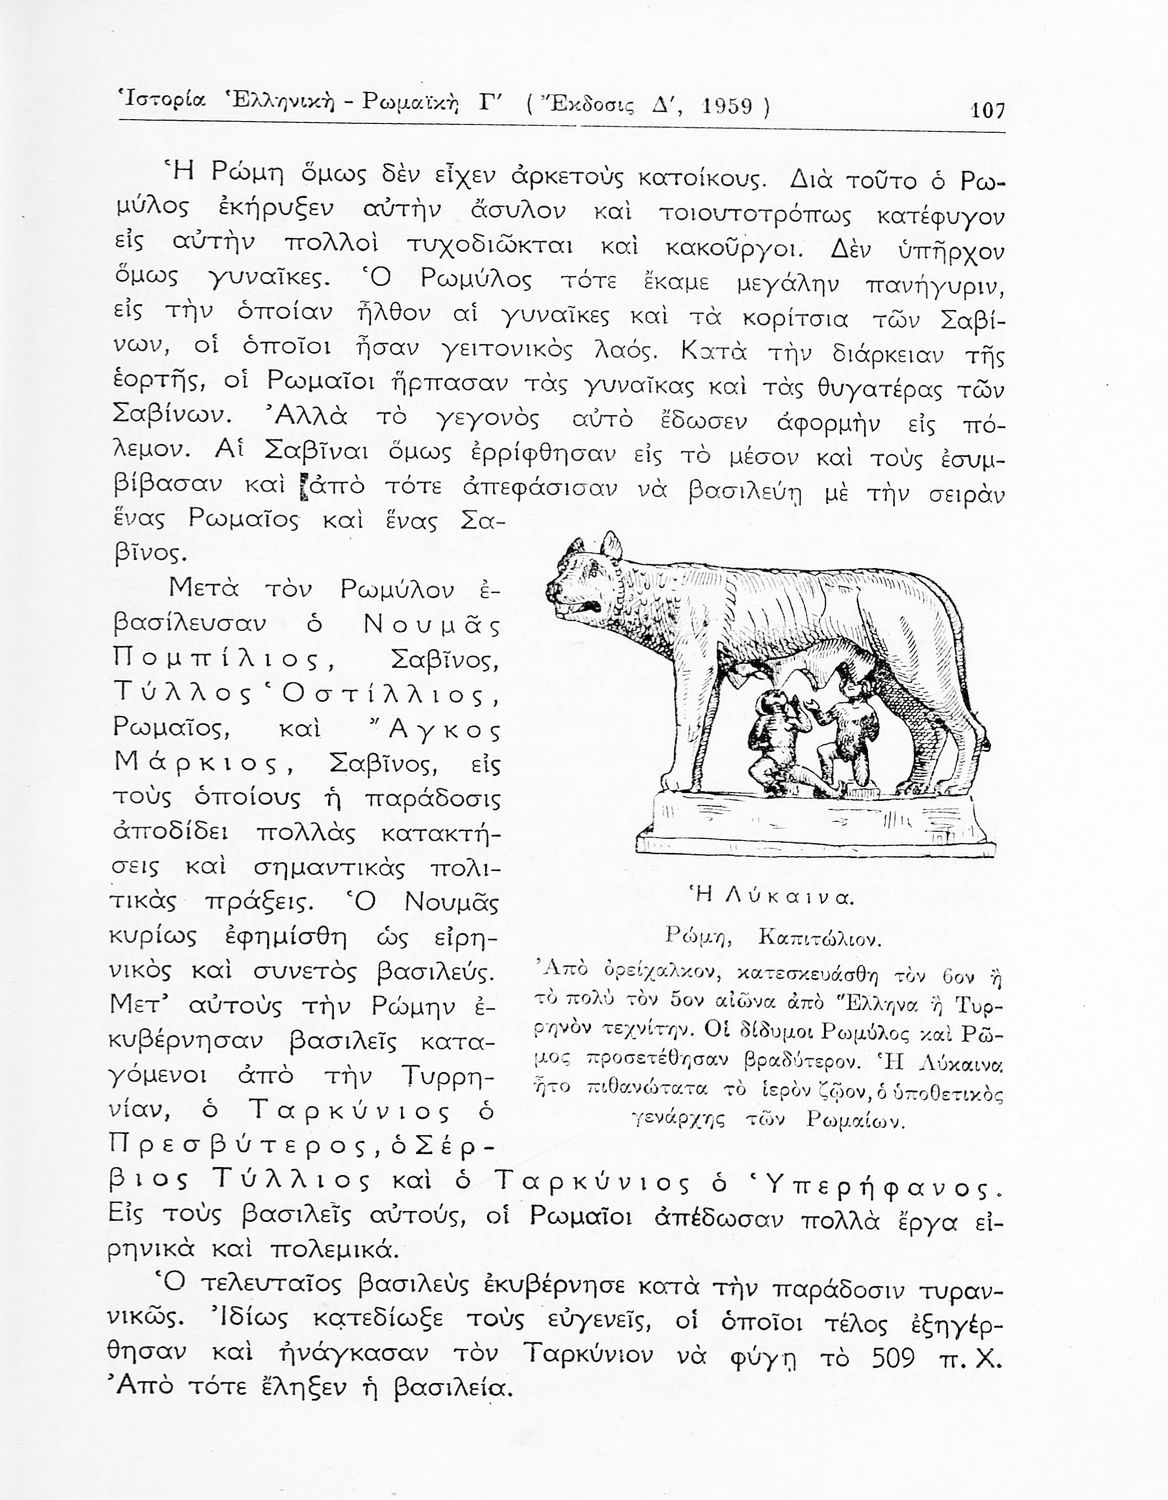 Ἱστορία Ἑλληνικὴ - Ρωμαϊκὴ Γ′ ( Ἔκδοσις Δ′, 1959 ) 107
Ἡ Ρώμη ὅμως δὲν εἶχεν ἀρκετοὺς κατοίκους. Διὰ τοῦτο ὁ Ρω-
μύλος ἐκήρυξεν αὐτὴν ἄσυλον καὶ τοιουτοτρόπως κατέφυγον
εἰς αὐτὴν πολλοὶ τυχοδιῶκται καὶ κακοῦργοι. Δὲν ὑπῆρχον
ὅμως γυναῖκες. Ὁ Ρωμύλος τότε ἔκαμε μεγάλην πανήγυριν,
εἰς τὴν ὁποίαν ἦλθον αἱ γυναῖκες καὶ τὰ κορίτσια τῶν Σαβί-
νων, οἱ ὁποῖοι ἦσαν γειτονικὸς λαός. Κατὰ τὴν διάρκειαν τῆς
ἑορτῆς, οἱ Ρωμαῖοι ἥρπασαν τὰς γυναῖκας καὶ τὰς θυγατέρας τῶν
Σαβίνων. Ἀλλὰ τὸ γεγονὸς αὐτὸ ἔδωσεν ἀφορμὴν εἰς πό-
λεμον. Αἱ Σαβῖναι ὅμως ἐρρίφθησαν εἰς τὸ μέσον καὶ τοὺς ἐσυμ-
βίβασαν καὶ ἀπὸ τότε ἀπεφάσισαν νὰ βασιλεύῃ μὲ τὴν σειρὰν
ἕνας Ρωμαῖος καὶ ἕνας Σα-
βῖνος.
Μετὰ τὸν Ρωμύλον ἐ-
βασίλευσαν ὁ Νουμᾶς
Πομπίλιος, Σαβῖνος,
Τύλλος Ὁστίλλιος,
Ρωμαῖος, καὶ Ἄγκος
Μάρκιος, Σαβῖνος, εἰς
τοὺς ὁποίους ἡ παράδοσις
ἀποδίδει πολλὰς κατακτή-
σεις καὶ σημαντικὰς πολι-
τικὰς πράξεις. Ὁ Νουμᾶς
κυρίως ἐφημίσθη ὡς εἰρη-
νικὸς καὶ συνετὸς βασιλεύς.
Μετ' αὐτοὺς τὴν Ρώμην ἐ-
κυβέρνησαν βασιλεῖς κατα-
γόμενοι ἀπὸ τὴν Τυρρη-
νίαν, ὁ Ταρκύνιος ὁ
Πρεσβύτερος, ὁ Σέρ-
βιος Τύλλιος καὶ ὁ Ταρκύνιος ὁ Ὑπερήφανος.
Εἰς τοὺς βασιλεῖς αὐτούς, οἱ Ρωμαῖοι ἀπέδωσαν πολλὰ ἔργα εἰ-
ρηνικὰ καὶ πολεμικά.
Ὁ τελευταῖος βασιλεὺς ἐκυβέρνησε κατὰ τὴν παράδοσιν τυραν-
νικῶς. Ἰδίως κατεδίωξε τοὺς εὐγενεῖς, οἱ ὁποῖοι τέλος ἐξηγέρ-
θησαν καὶ ἠνάγκασαν τὸν Ταρκύνιον νὰ φύγῃ τὸ 509 π. Χ.
Ἀπὸ τότε ἔληξεν ἡ βασιλεία.
Ἡ Λύκαινα.
Ρώμη, Καπιτώλιον.
Ἀπὸ ὀρείχαλκον, κατεσκευάσθη τὸν 6ον ἢ
τὸ πολὺ τὸν 5ον αἰῶνα ἀπὸ Ἕλληνα ἢ Τυρ-
ρηνὸν τεχνίτην. Οἱ δίδυμοι Ρωμύλος καὶ Ρῶ-
μος προσετέθησαν βραδύτερον. Ἡ Λύκαινα
ἦτο πιθανώτατα τὸ ἱερὸν ζῷον, ὁ ὑποθετικὸς
γενάρχης τῶν Ρωμαίων.